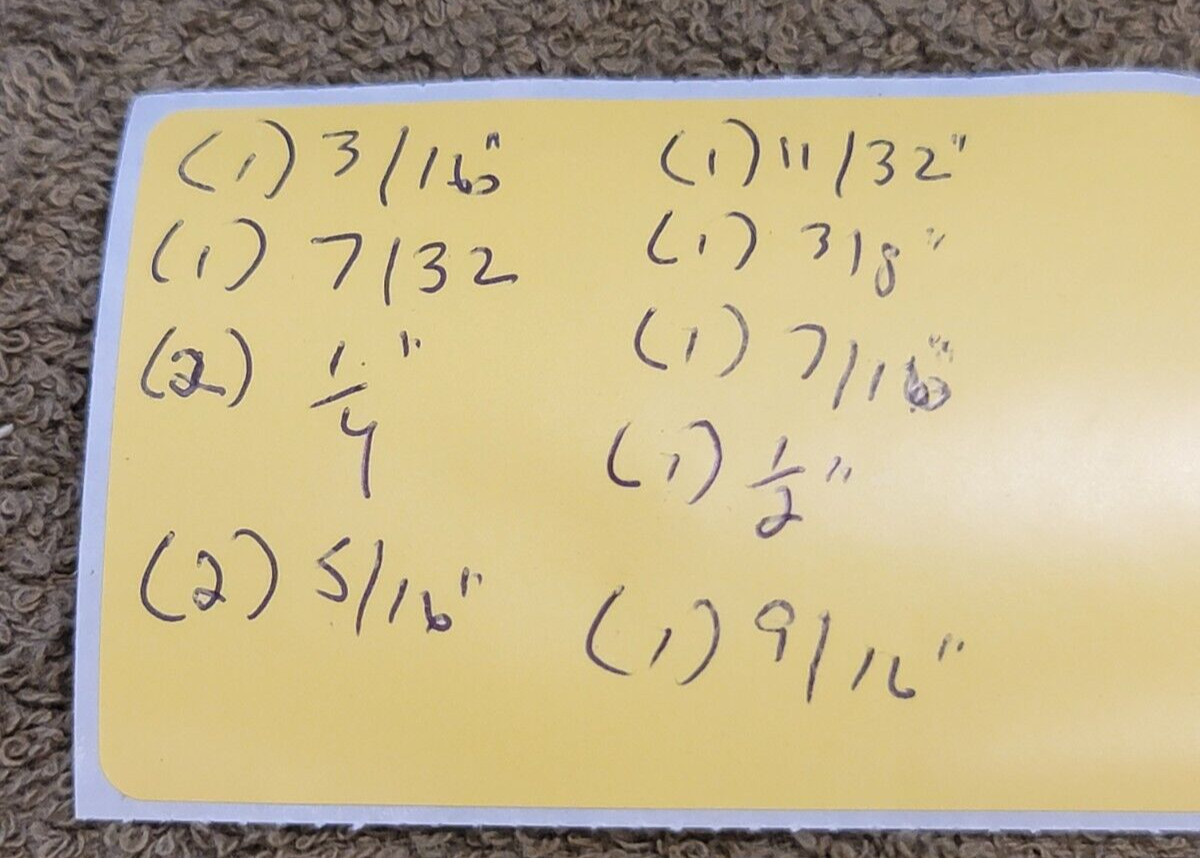 (1) 3/16"
(1) 7/32
(2) 1/4"
(2) 5/16"
(1) 11/32"
(1) 3/8"
(1) 7/16"
(1) 1/2"
(1) 9/16"